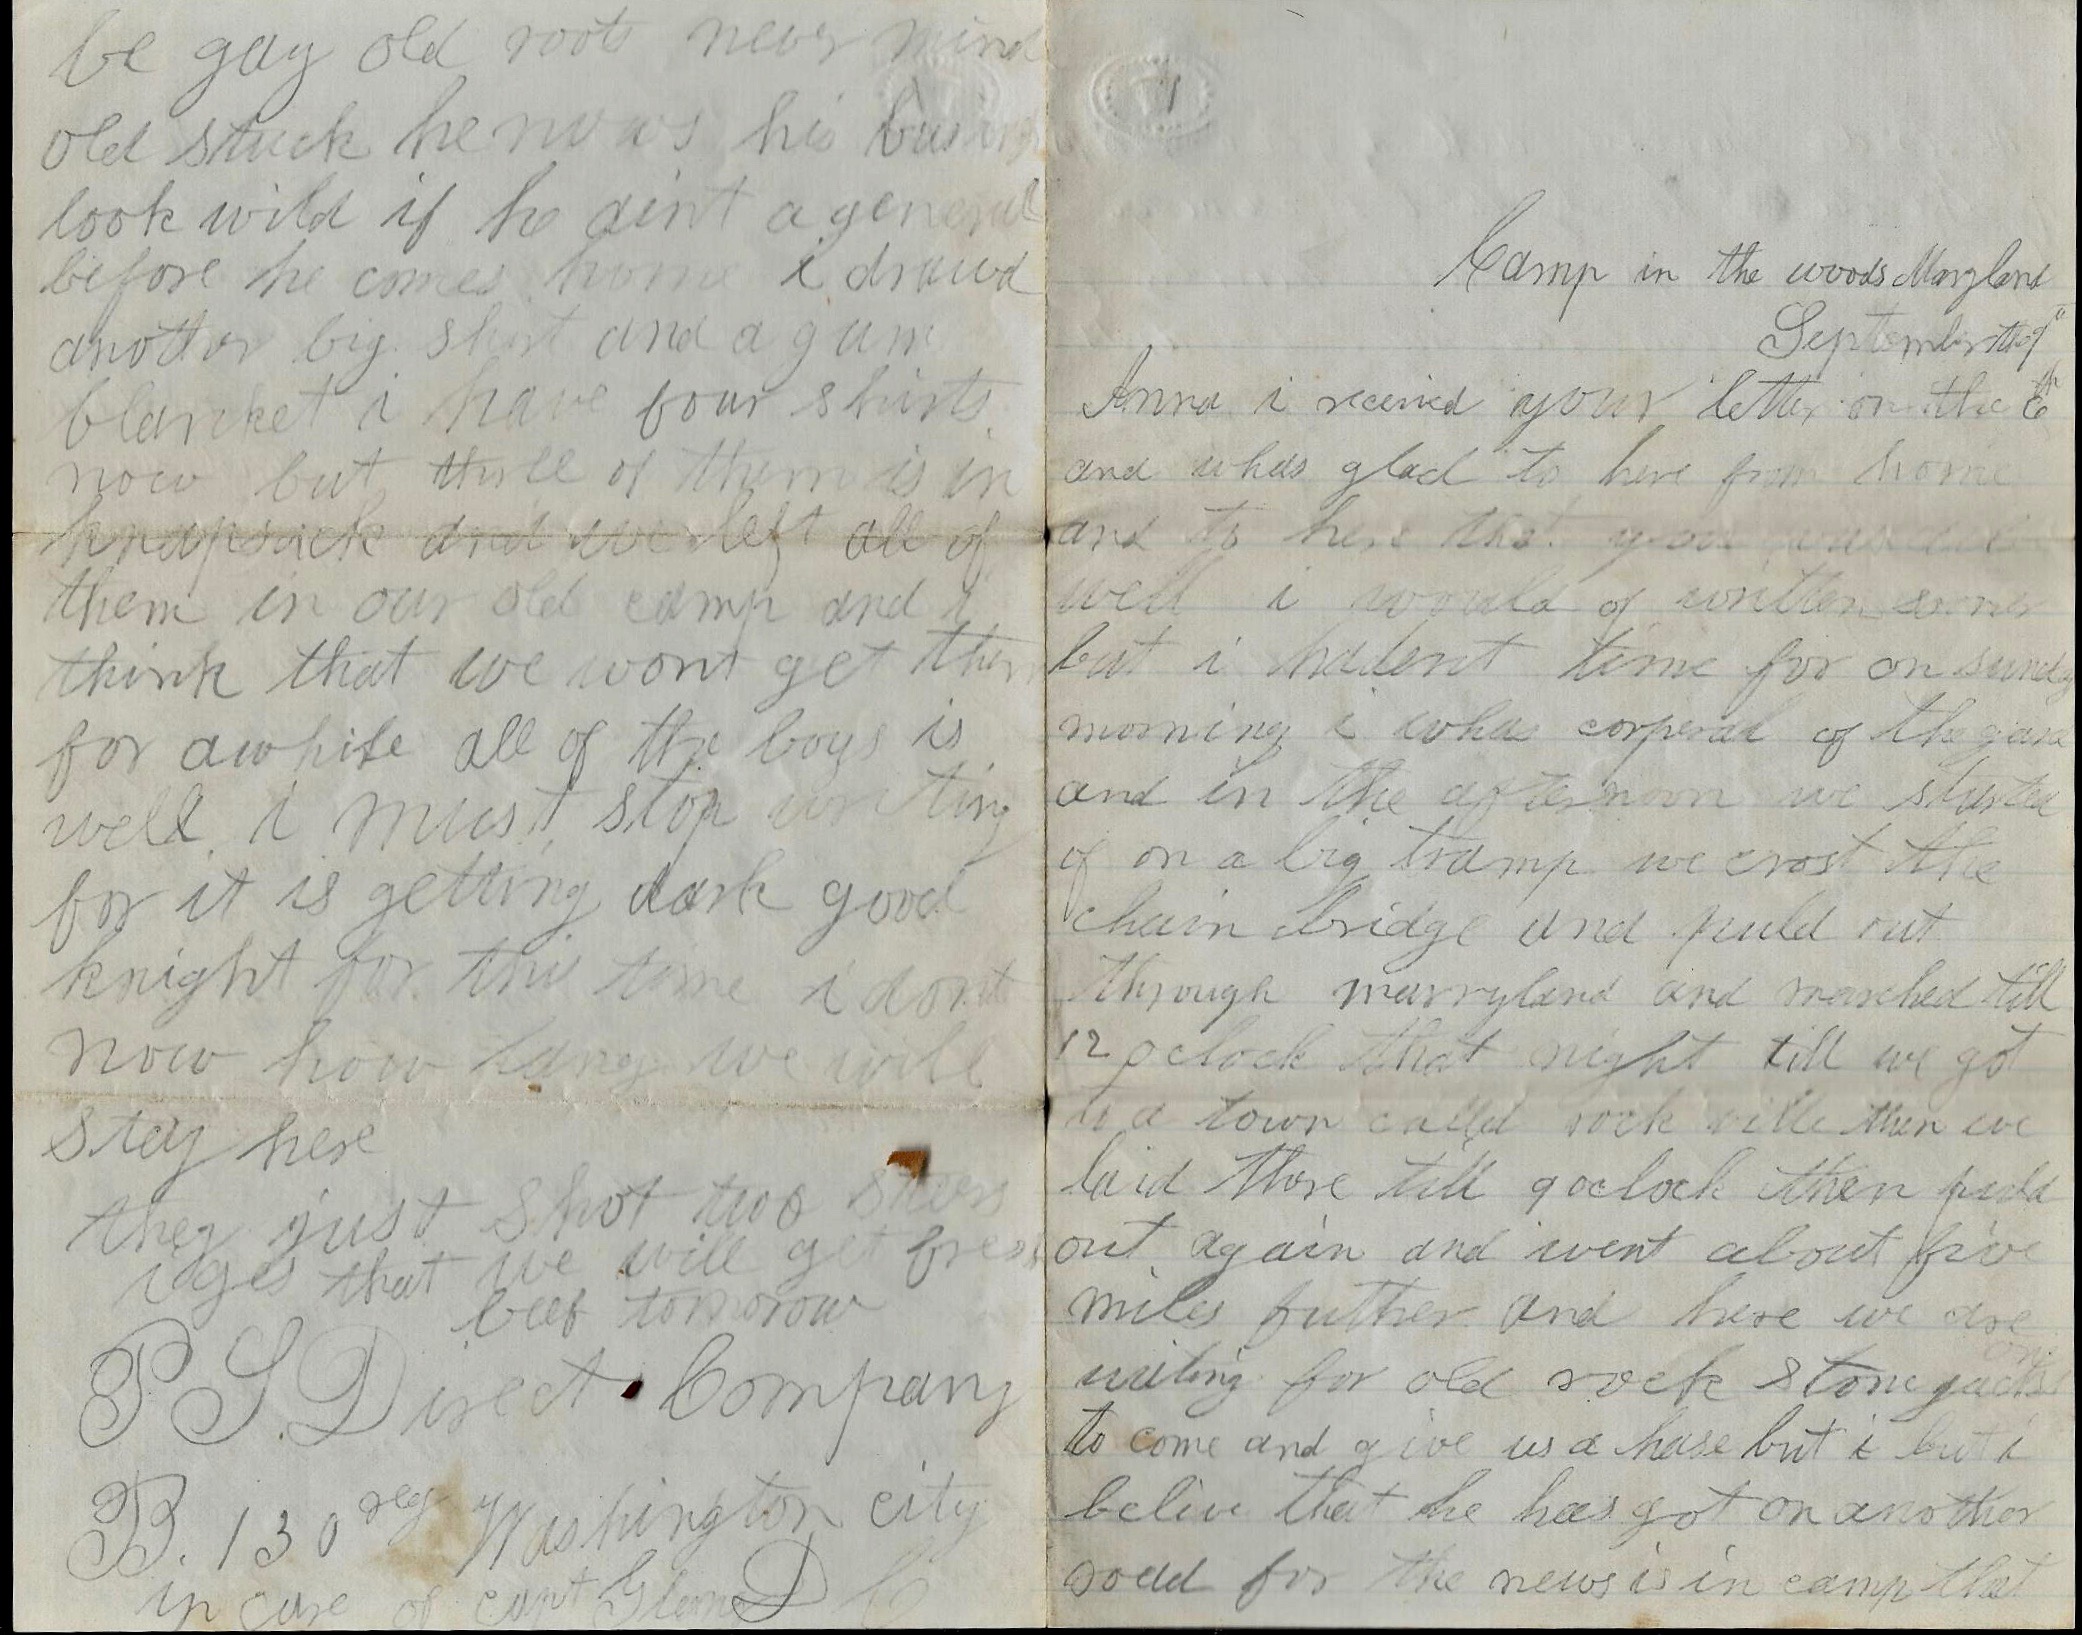 Camp in the woods Maryland
September the 9"
Anna i received your letter on the 6th
and whas glad to here from home
and to here that you
well i would of written sooner
but i hadent time for on sunday
morning i whas corperal of the gard
and in the afternoon we started
of on a big tramp we crost the
chain bridge and puld out
through marryland and marched till
12 oclock that night till we got
to a town called rock ville then we
laid thore till 9 oclock then puld
out again and went about five
miles futher and here we are
waiting for old rock stone jackson
to come and give us a hase but i but i
belive that he has got on another
road for the news is in camp that
be gay old roots never mind
old stuck he nows his business
look wild if he aint a general
before he comes home i drawd
another big shirt and a gum
blanket i have four shirts
now but three of them is in
knapsack and we left all of
them in our old camp and i
think that we wont get them
for awhile all of the boys is
well i must stop writing
for it is getting dark good
knight for this time i dont
now how lang we will
stay here
they just shot two steers
i ges that we will get fresh
beef tomorow
PS. Direct Company
B. 130 reg Washington city
in care of capt D C